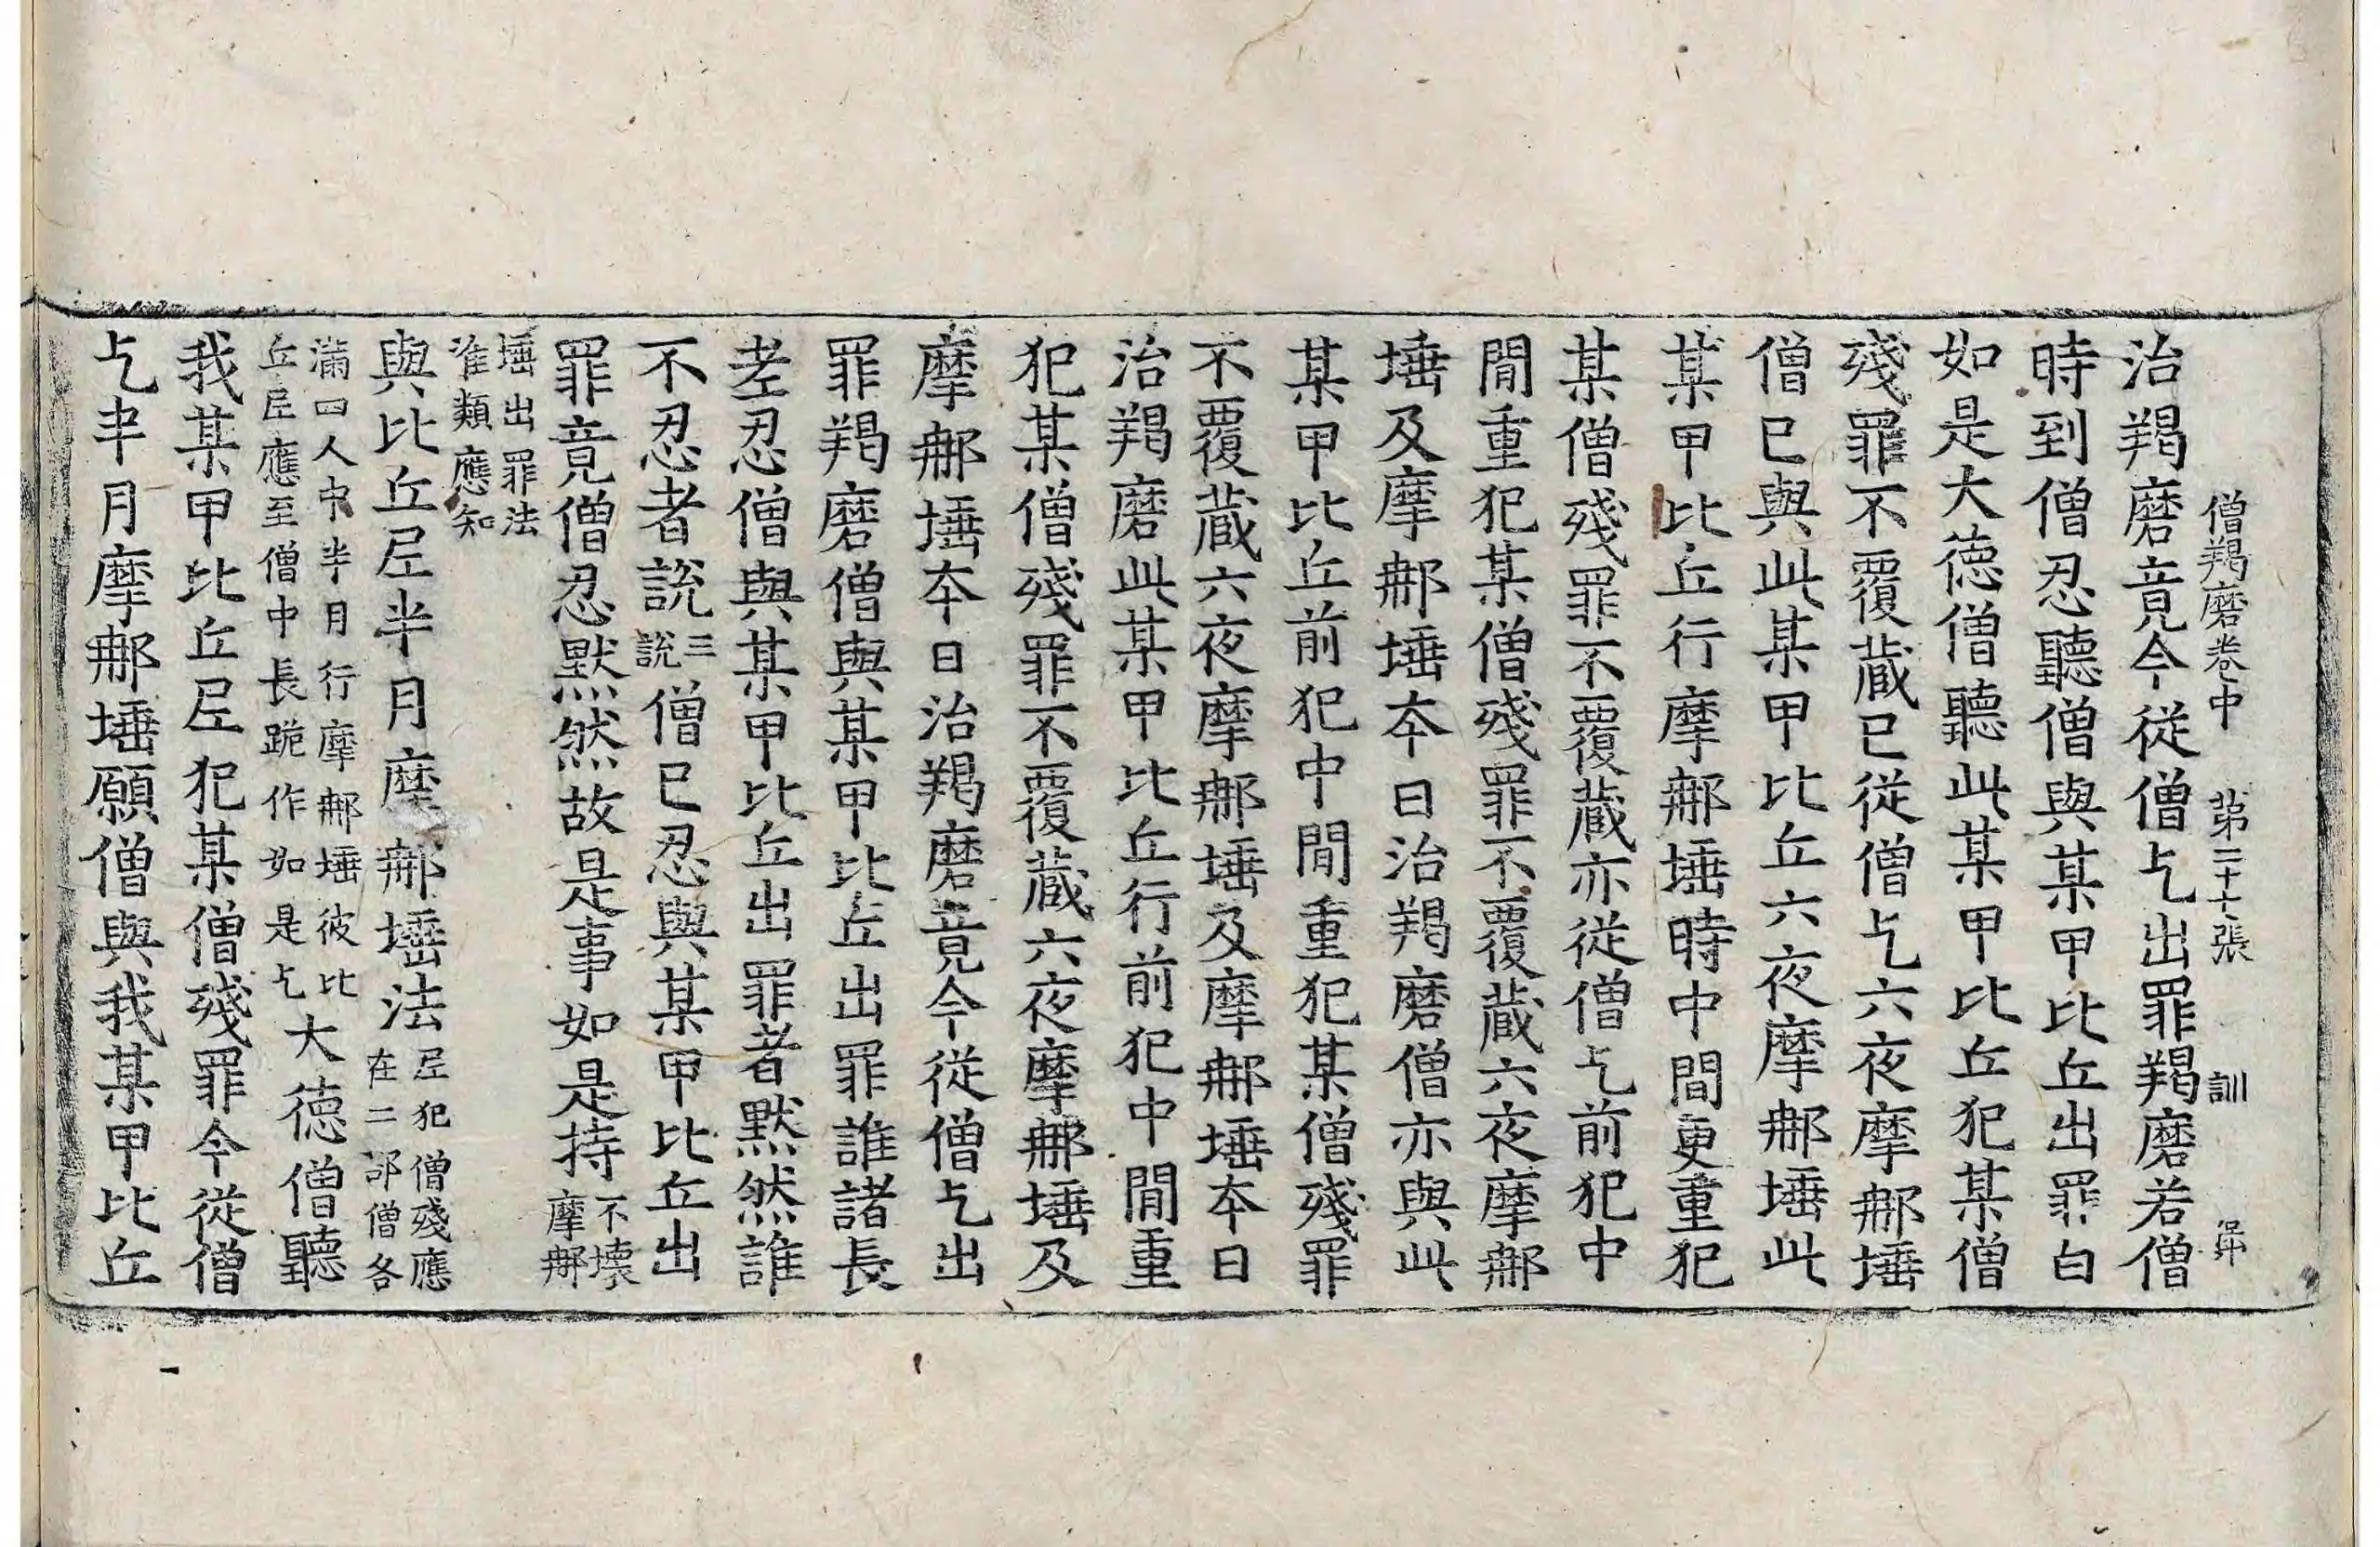 僧羯磨卷中 第二十張 訓
治羯磨竟今從僧乞出罪羯磨若僧
時到僧忍聽僧與某甲比丘出罪白
如是大德僧聽此某甲比丘犯某僧
殘罪不覆藏已從僧乞六夜摩那埵
僧已與此某甲比丘六夜摩那埵此
某甲比丘行摩那埵時中間更重犯
某僧殘罪不覆藏亦從僧乞前犯中
閒重犯某僧殘罪不覆藏六夜摩那
埵及摩那埵本日治羯磨僧亦與此
某甲比丘前犯中閒重犯某僧殘罪
不覆藏六夜摩那埵及摩那埵本日
治羯磨此某甲比丘行前犯中閒重
犯某僧殘罪不覆藏六夜摩那埵及
摩那埵本日治羯磨竟今從僧乞出
罪羯磨僧與某甲比丘出罪誰諸長
老忍僧與某甲比丘出罪者默然誰
不忍者說三說僧已忍與某甲比丘出
罪竟僧忍默然故是事如是持不壞摩那
埵出罪法准類應知
與比丘尼半月摩那埵法尼犯僧殘應在二部僧各
滿四人中半月行摩那埵彼比丘尼應至僧中長跪作如是乞大德僧聽
我某甲比丘尼犯某僧殘罪今從僧
乞半月摩那埵願僧與我某甲比丘